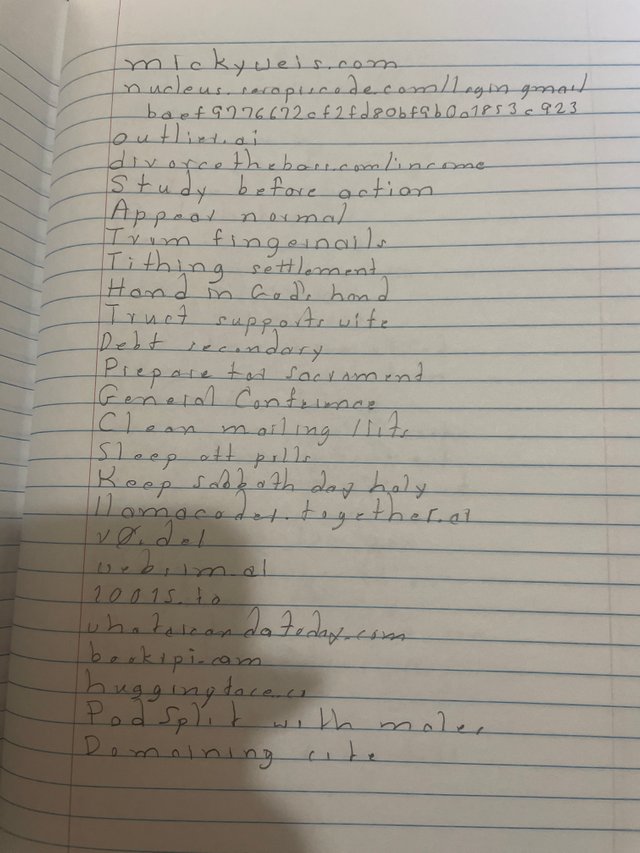 mickyweis.com
nucleus.scrapiscode.com/login gmail
baef9776672cf2fd80bf9b0a7853c923
outlier.ai
divorcetheboss.com/income
Study before action
Appear normal
Trim fingernails
Tithing settlement
Hand in God's hand
Trust supports wife
Debt secondary
Prepare for sacrament
General Conference
Clean mailing lists
Sleep off pills
Keep sabbath day holy
llamacoder.together.ai
v0.dev
websim.ai
10015.io
whatoicandotoday.com
bookipi.com
huggingface.co
Pod Split with males
Domaining site